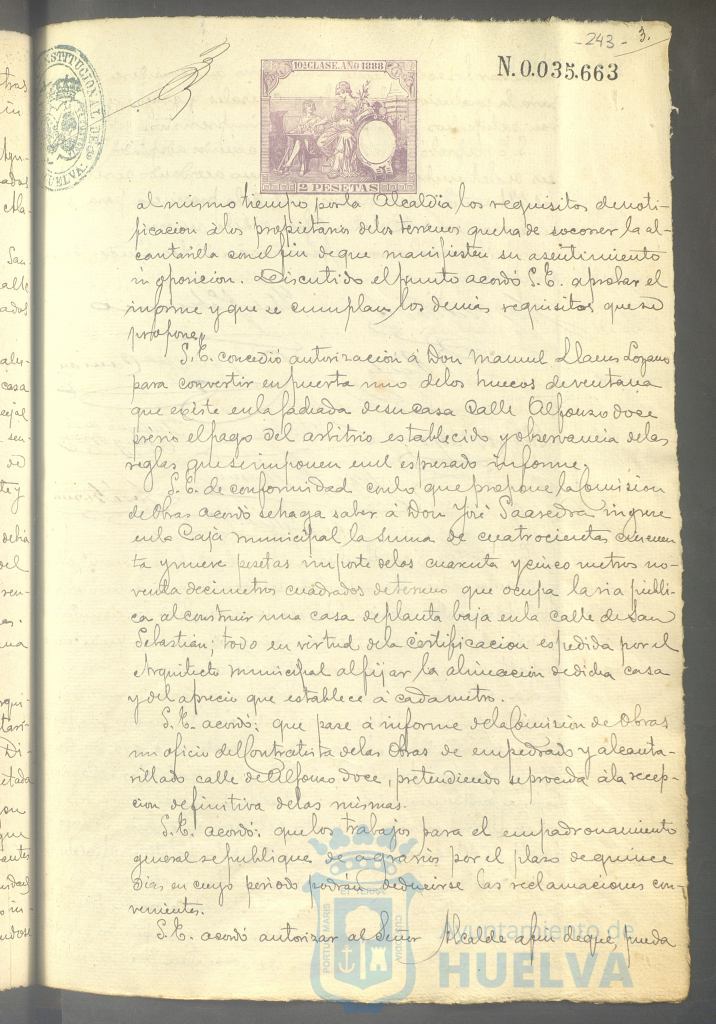 -243- 3.
N. 0.035.663
CONSTITUCIONAL DE
HUELVA
10ª CLASE. AÑO 1888
2 PESETAS
al mismo tiempo por la Alcaldia los requisitos de noti-
ficacion á los propietarios de los terrenos que ha de socorrer la al-
cantarilla con el fin de que manifiesten su asentimiento
ú oposicion. Discutido el punto acordó S.E. aprobar el
informe y que se cumplan los demás requisitos que se
propone,,
S.E. concedió autorización á Don Manuel Llanes Lozano
para convertir en puerta uno de los huecos de ventana
que existe en la fachada de su casa Calle Alfonso doce
prévio el pago del arbitrio establecido y observancia de las
reglas que se imponen en el espresado informe.
S.E. de conformidad con lo que propone la Comision
de Obras acordó se haga saber á Don José Saavedra ingrese
en la Caja municipal la suma de cuatrocientas cincuen-
ta y nueve pesetas importe de los cuarenta y cinco metros no-
venta decimetros cuadrados de terreno que ocupa la via públi-
ca al construir una casa de planta baja en la calle de San
Sebastian; todo en virtud de la certificacion espedida por el
Arquitecto municipal al fijar la alineacion de dicha casa
y del aprecio que establece á cada metro.
S.E. acordó: que pase á informe de la Comisión de Obras
un oficio del Contratista de las Obras de empedrado y alcanta-
rillado calle de Alfonso doce, pretendiendo se proceda á la recep-
cion definitiva de las mismas.
S.E. acordó: que los trabajos para el empadronamiento
general se publique de agravios por el plazo de quince
dias en cuyo periodo podrán deducirse las reclamaciones con-
venientes.
S.E. acordó autorizar al Señor Alcalde a fin de que pueda
Ayuntamiento de
HUELVA
PORTUS MARIS
CUSTODIA